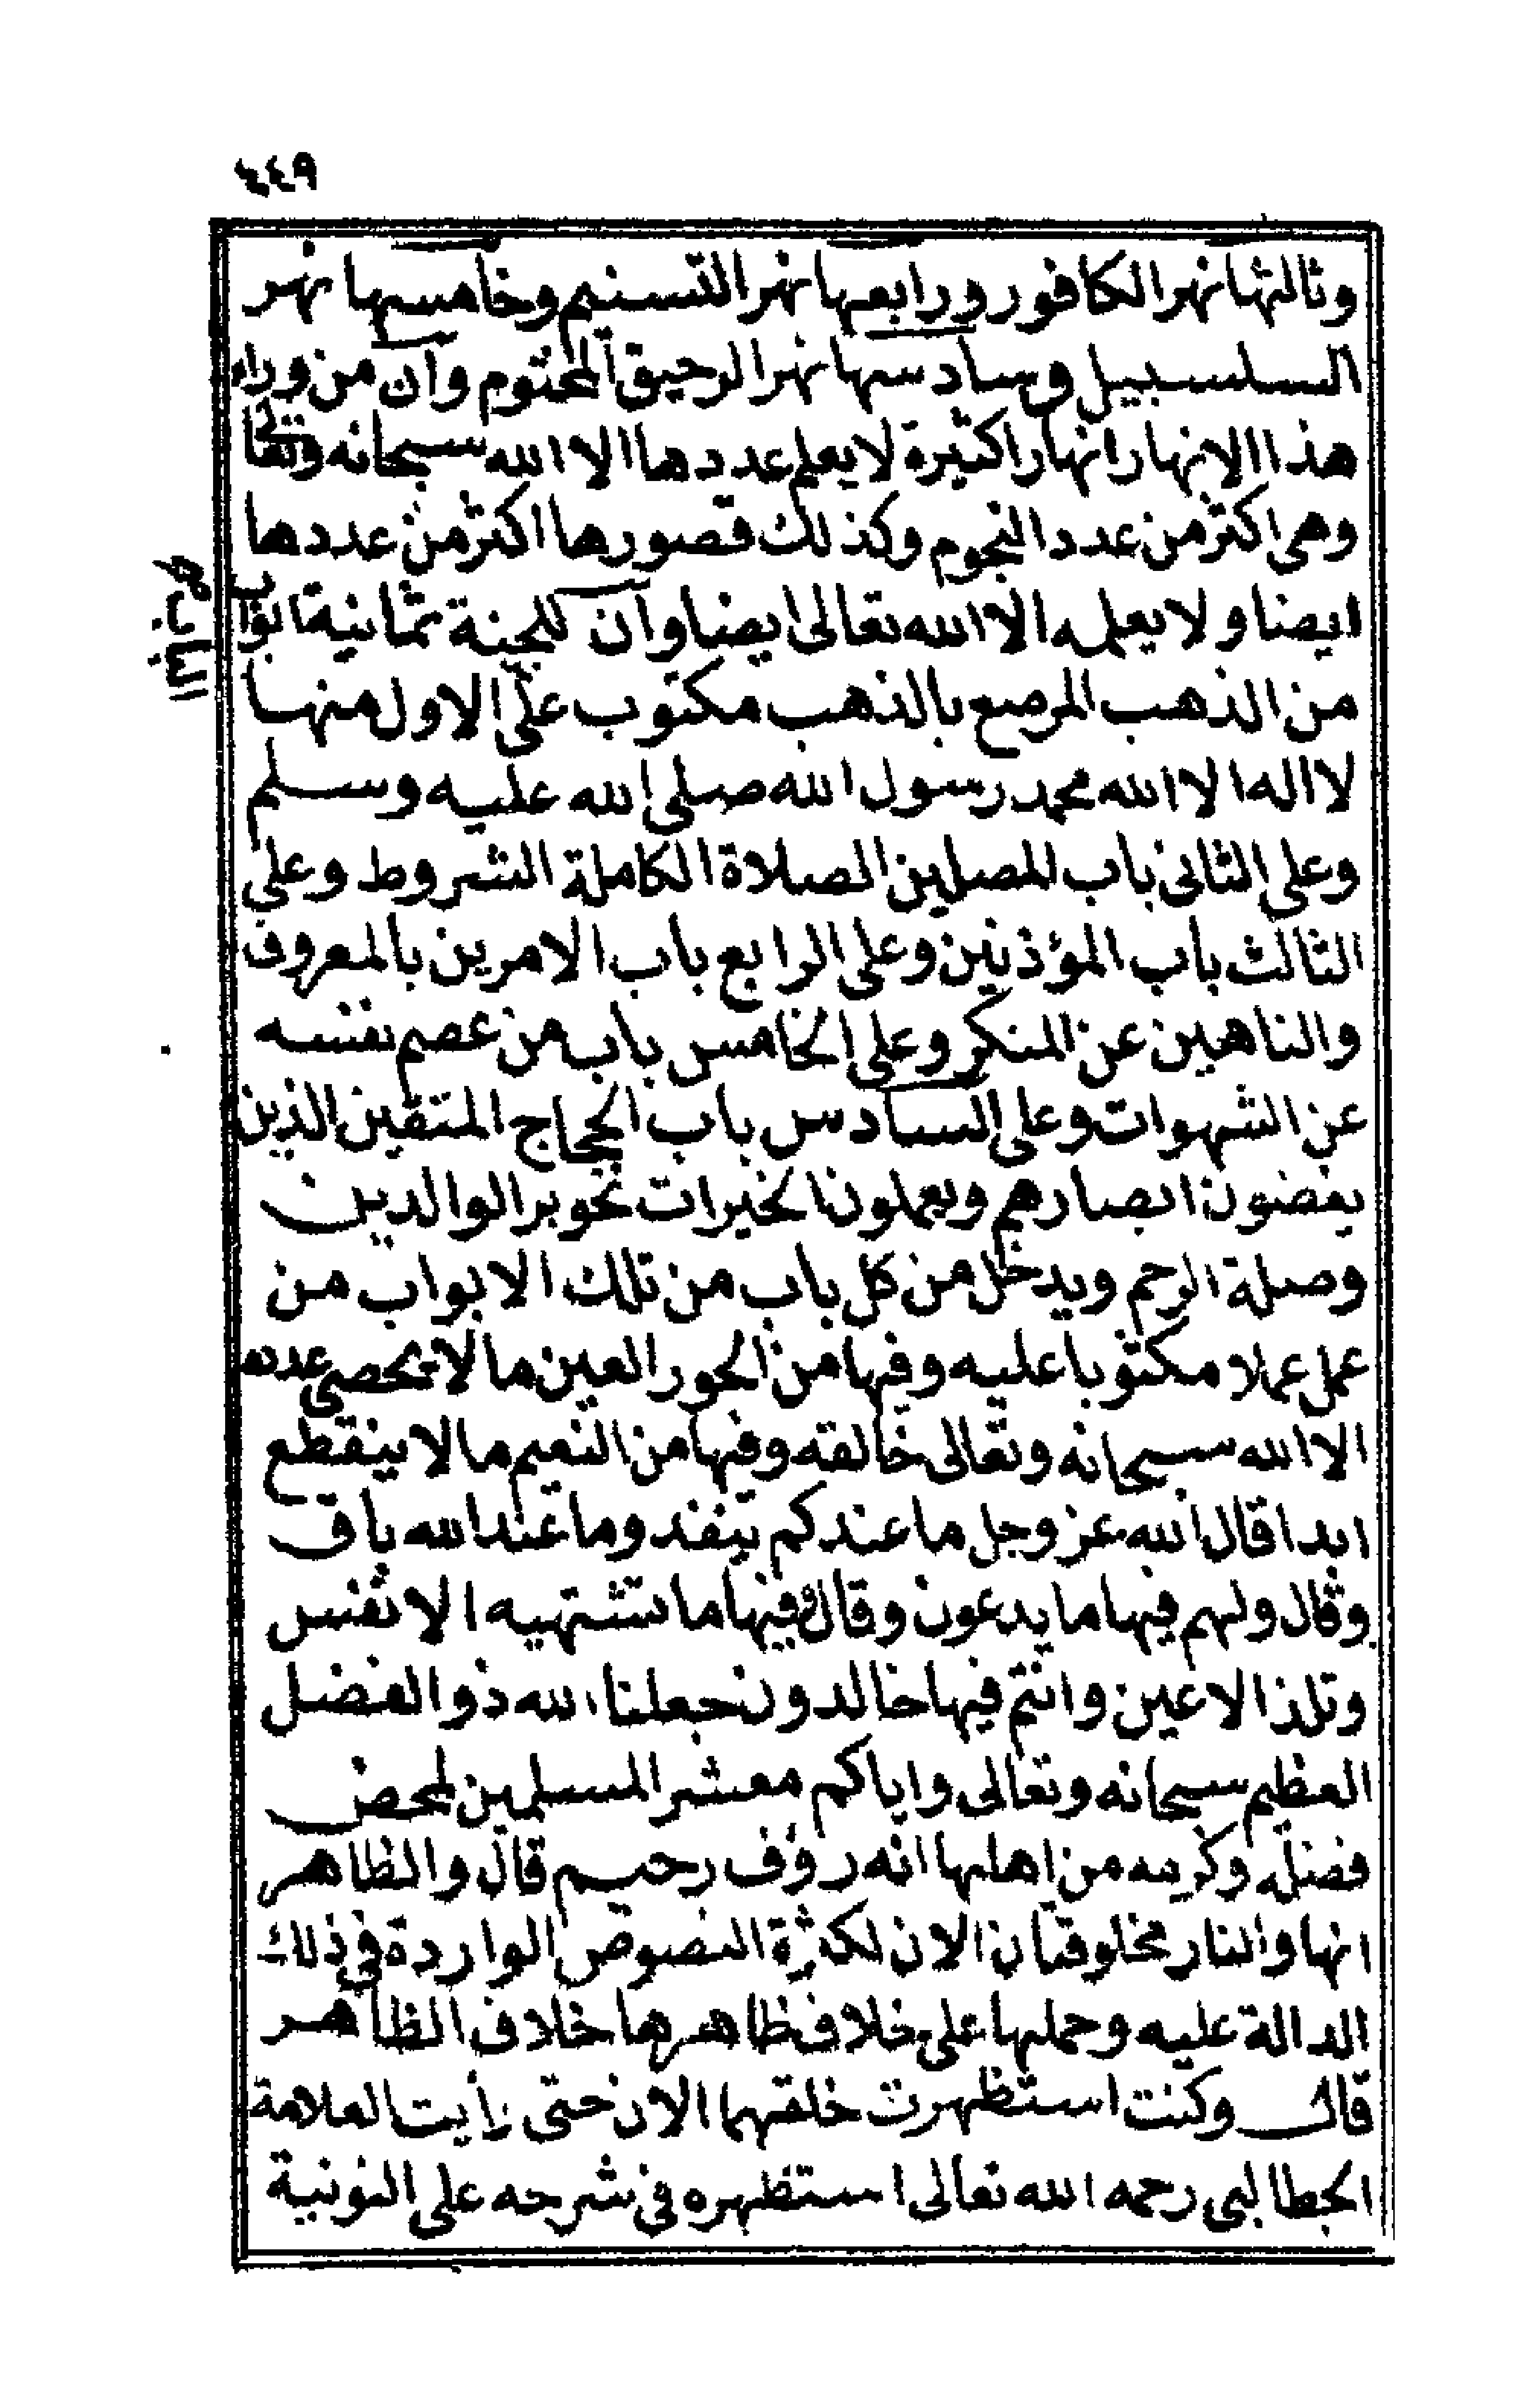 ٤٤٩
وثالثها نهر الكافور ورابعها نهر التسنيم وخامسها نهر
السلسبيل وسادسها نهر الرحيق المختوم وان من وراء
هذا الانهار انهارا كثيرة لا يعلم عددها الا الله سبحانه وتعالى
وهى اكثر من عدد النجوم وكذلك قصورها اكثر من عددها
ايضا ولا يعلمه الا الله تعالى ايضا وان للجنة ثمانية ابواب
من الذهب المرصع بالذهب مكتوب على الاول منها
لا اله الا الله محمد رسول الله صلى الله عليه وسلم
وعلى الثانى باب المصلين الصلاة الكاملة الشروط وعلى
الثالث باب المؤذنين وعلى الرابع باب الامرين بالمعروف
والناهين عن المنكر وعلى الخامس باب من عصم نفسه
عن الشهوات وعلى السادس باب الحجاج المتقين الذين
يغضون ابصارهم ويعملون الخيرات نحو بر الوالدين
وصلة الرحم ويدخل من كل باب من تلك الابواب من
عمل عملا مكتوبا عليه وفيها من الحور العين ما لا يحصى عدده
الا الله سبحانه وتعالى خالقه وفيها من النعيم ما لا ينقطع
ابدا قال الله عز وجل ما عندكم ينفد وما عند الله باق
وقال ولهم فيها ما يدعون وقال وفيها ما تشتهيه الانفس
وتلذ الاعين وانتم فيها خالدون جعلنا الله ذو الفضل
العظيم سبحانه وتعالى واياكم معشر المسلمين لمحض
فضله وكرمه من اهلها انه رؤف رحيم قال والظاهر
انها والنار مخلوقتان الان لكثرة النصوص الواردة فى ذلك
الدالة عليه وحملها على خلاف ظاهرها خلاف الظاهر
قال وكنت استظهرت خلقهما الان حتى رأيت العلامة
الحطالبى رحمه الله تعالى استظهره فى شرحه على النونية